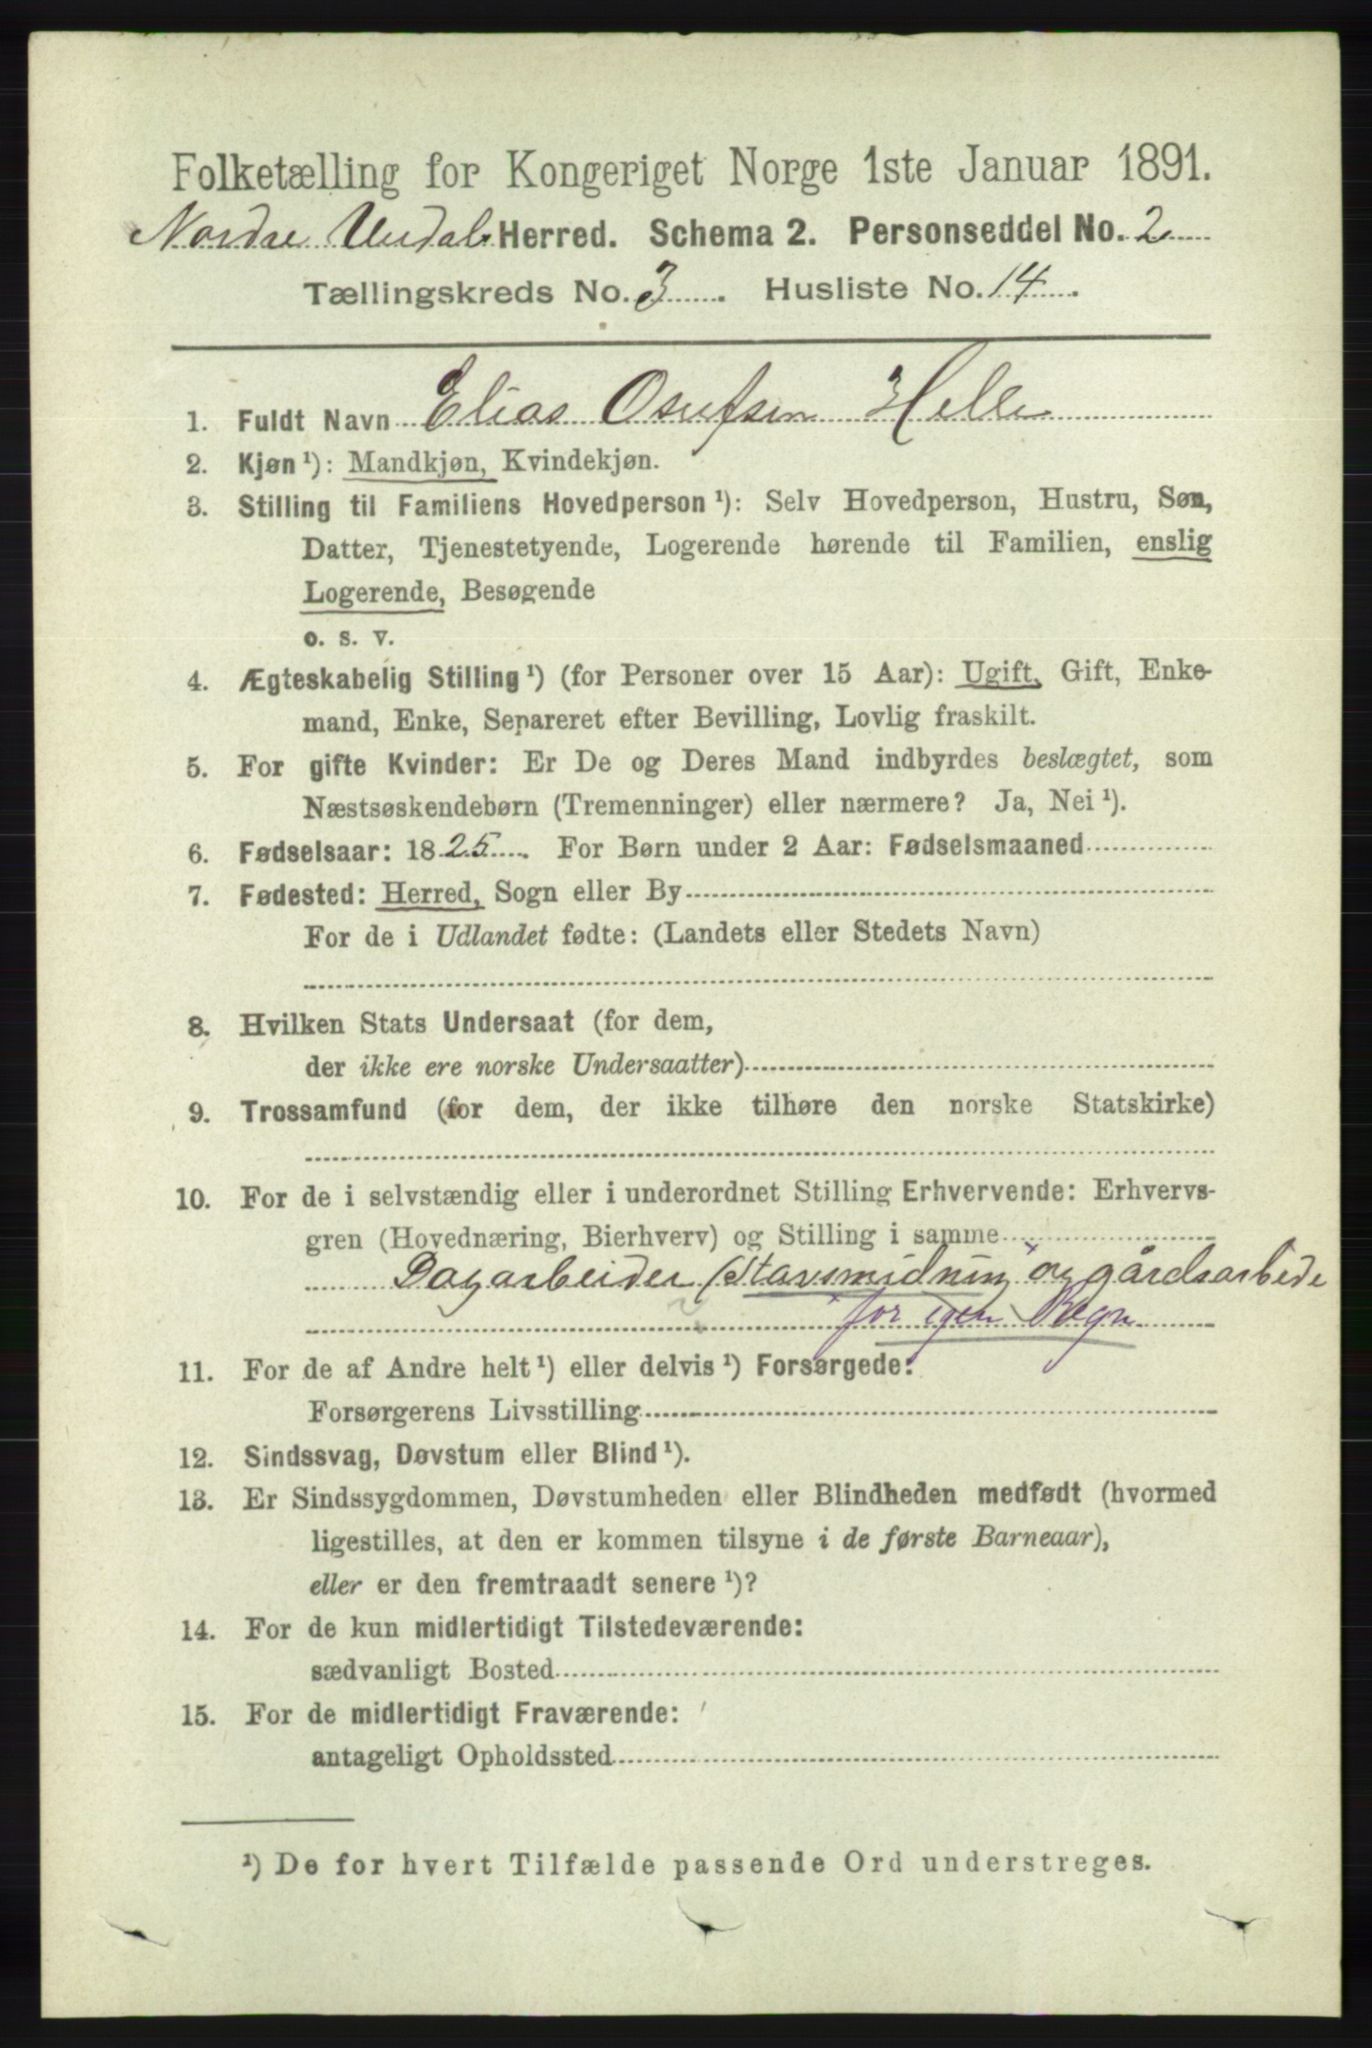 Folketælling for Kongeriget Norge 1ste Januar 1891.
Nordre Undals Herred. Schema 2. Personseddel No. 2
Tællingskreds No. 3. Husliste No. 14.
1. Fuldt Navn Elias Osufsen Helle
2. Kjøn ¹): Mandkjøn, Kvindekjøn.
3. Stilling til Familiens Hovedperson ¹): Selv Hovedperson, Hustru, Søn,
Datter, Tjenestetyende, Logerende hørende til Familien, enslig
Logerende, Besøgende
o. s. v.
4. Ægteskabelig Stilling ¹) (for Personer over 15 Aar): Ugift, Gift, Enke-
mand, Enke, Separeret efter Bevilling, Lovlig fraskilt.
5. For gifte Kvinder: Er De og Deres Mand indbyrdes beslægtet, som
Næstsøskendebørn (Tremenninger) eller nærmere? Ja, Nei ¹).
6. Fødselsaar: 1825. For Børn under 2 Aar: Fødselsmaaned
7. Fødested: Herred, Sogn eller By
For de i Udlandet fødte: (Landets eller Stedets Navn)
8. Hvilken Stats Undersaat (for dem,
der ikke ere norske Undersaatter)
9. Trossamfund (for dem, der ikke tilhøre den norske Statskirke)
10. For de i selvstændig eller i underordnet Stilling Erhvervende: Erhvervs-
gren (Hovednæring, Bierhverv) og Stilling i samme
Dagarbeider (Stavsmidning og gårdsarbede
for egen Regn
11. For de af Andre helt ¹) eller delvis ¹) Forsørgede:
Forsørgerens Livsstilling
12. Sindssvag, Døvstum eller Blind ¹).
13. Er Sindssygdommen, Døvstumheden eller Blindheden medfødt (hvormed
ligestilles, at den er kommen tilsyne i de første Barneaar),
eller er den fremtraadt senere ¹)?
14. For de kun midlertidigt Tilstedeværende:
sædvanligt Bosted
15. For de midlertidigt Fraværende:
antageligt Opholdssted
¹) De for hvert Tilfælde passende Ord understreges.